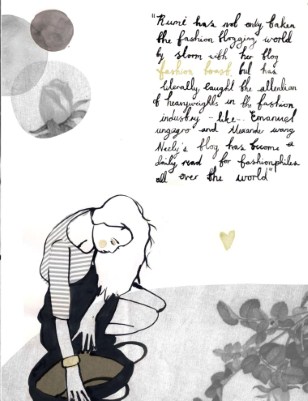 "Rumi has not only taken
the fashion blogging world
by storm with her blog
fashion toast, but has
literally caught the attention
of heavyweights in the fashion
industry - like.. Emanuel
ungaro and Alexander wang
Neely's blog has become a
daily read for fashionphiles
all over the world"